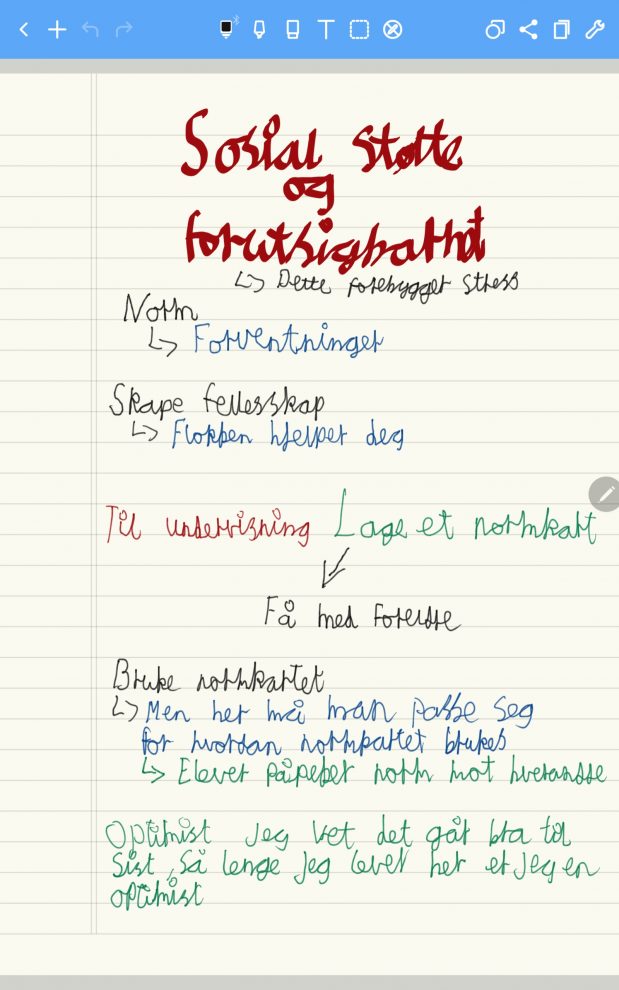 Sosial støtte
og
forutsigbarhet
↳ Dette forebygger stress
Norm
↳ Forventninger
Skape fellesskap
↳ Flokken hjelper deg
Til undervisning Lage et normkart
Få med foreldre
Bruke normkartet
↳ Men her må man passe seg
for hvordan normkartet brukes
↳ Elever påpeker norm mot hverandre
Optimist Jeg vet det går bra til
sist, så lenge jeg lever her er jeg en
optimist